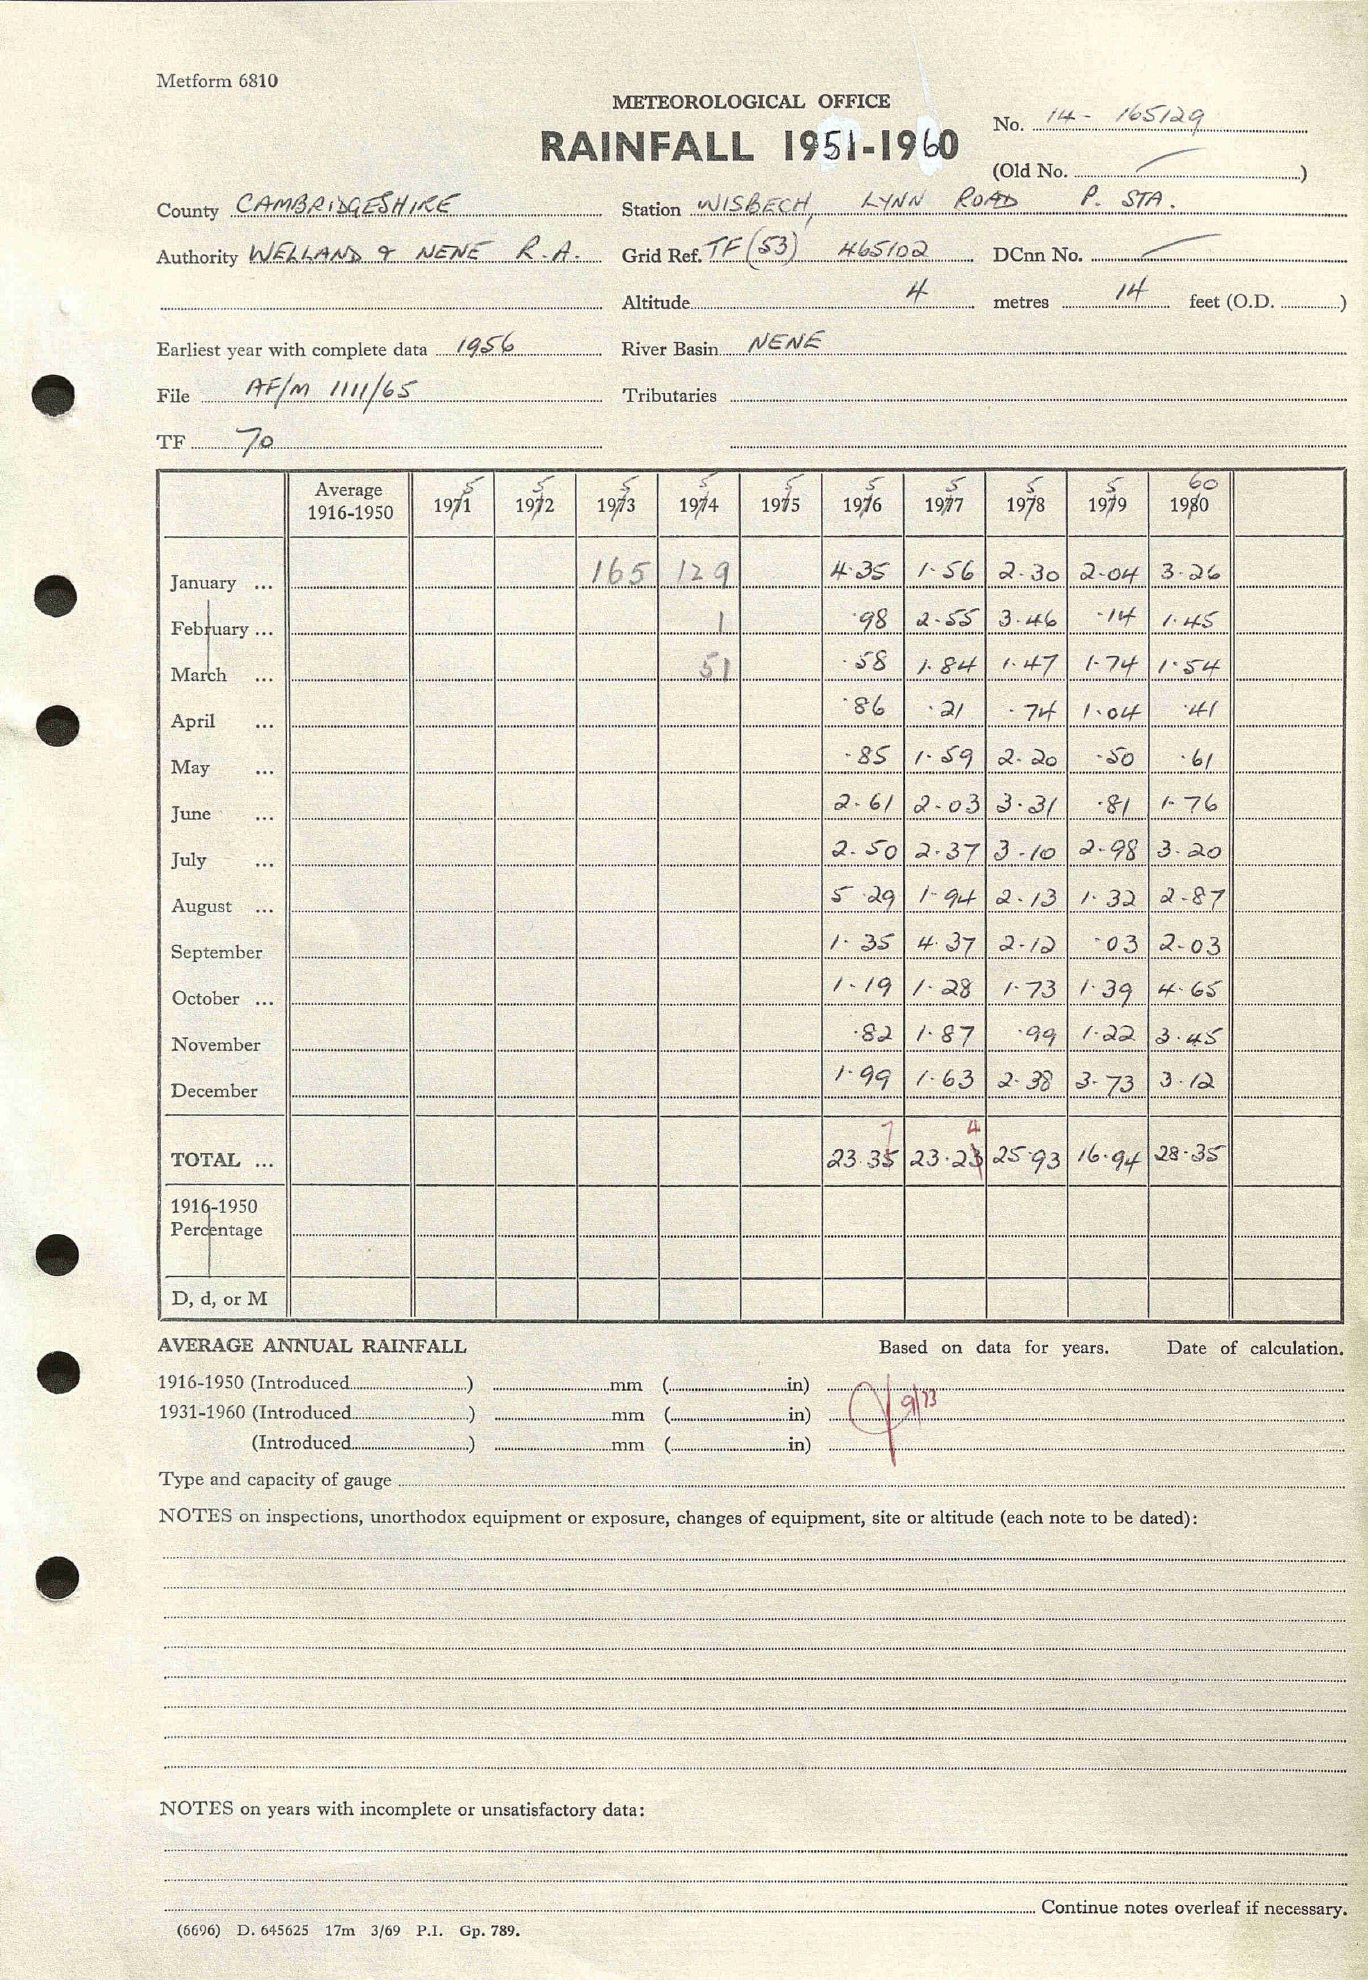 Metform 6810
METEOROLOGICAL OFFICE
RAINFALL 1951-1960
No. 14- 165129
(Old No. )
County CAMBRIDGESHIRE Station WISBECH, LYNN ROAD P. STA.
Authority WELLAND & NENE R.A. Grid Ref. TF (53) 465102 DCnn No.
Altitude 4 metres 14 feet (O.D. )
Earliest year with complete data 1956 River Basin NENE
File AF/M 1111/65 Tributaries
TF 70
5 5 5 5 5 5 5 5 5 60
Average 1916-1950 1971 1972 1973 1974 1975 1976 1977 1978 1979 1980
January ... 165 129 4.35 1.56 2.30 2.04 3.26
February ... 1 .98 2.55 3.46 .14 1.45
March ... 51 .58 1.84 1.47 1.74 1.54
April ... .86 .21 .74 1.04 .41
May ... .85 1.59 2.20 .50 .61
June ... 2.61 2.03 3.31 .81 1.76
July ... 2.50 2.37 3.10 2.98 3.20
August ... 5.29 1.94 2.13 1.32 2.87
September 1.35 4.37 2.12 .03 2.03
October ... 1.19 1.28 1.73 1.39 4.65
November .82 1.87 .99 1.22 3.45
December 1.99 1.63 2.38 3.73 3.12
7 4
TOTAL ... 23.35 23.23 25.93 16.94 28.35
1916-1950
Percentage
D, d, or M
AVERAGE ANNUAL RAINFALL Based on data for years. Date of calculation.
1916-1950 (Introduced ) mm ( in)
1931-1960 (Introduced ) mm ( in) 9/73
(Introduced ) mm ( in)
Type and capacity of gauge
NOTES on inspections, unorthodox equipment or exposure, changes of equipment, site or altitude (each note to be dated):
NOTES on years with incomplete or unsatisfactory data:
Continue notes overleaf if necessary.
(6696) D. 645625 17m 3/69 P.I. Gp. 789.